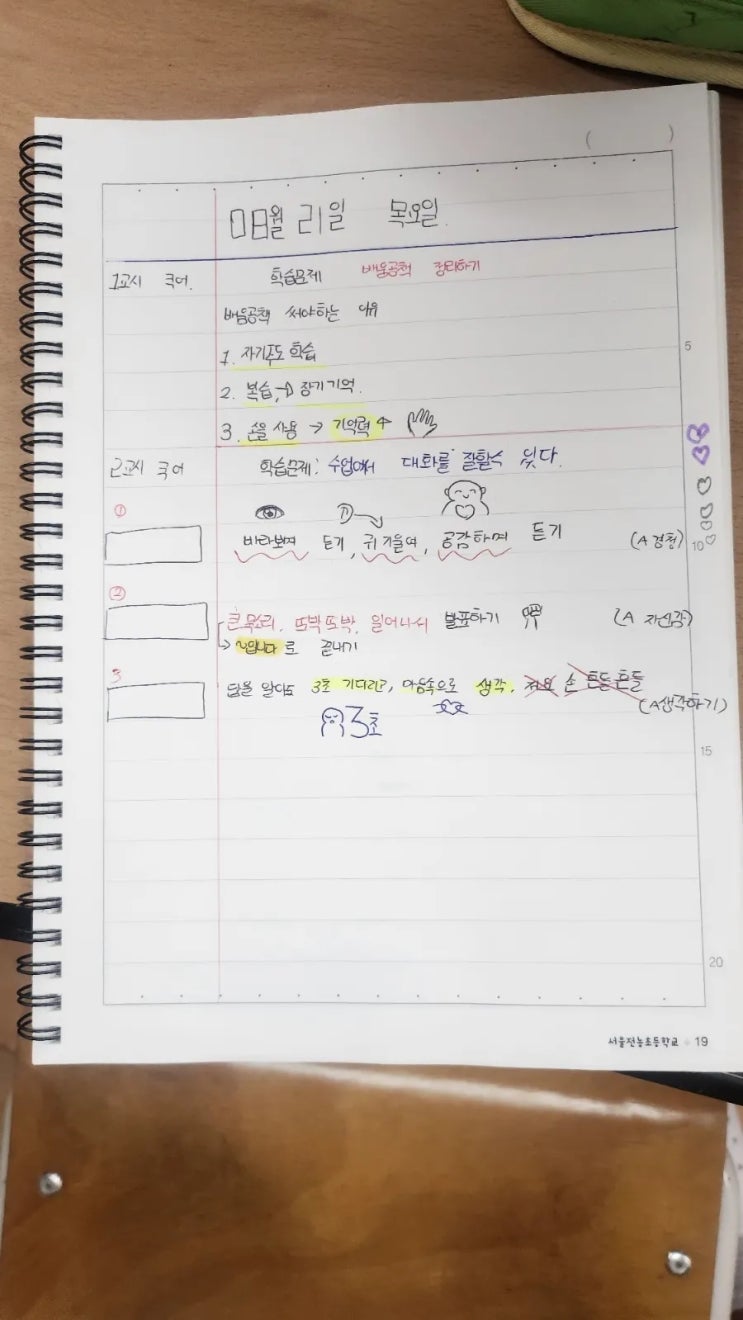 ( )
08월 21일 목요일.
1교시 국어. 학습문제 배움공책 정리하기
배움공책 써야하는 이유
1. 자기주도 학습
2. 복습, → 장기기억.
3. 손을 사용 → 기억력↑
5
2교시 국어 학습문제: 수업에서 대화를 잘할수 있다.
①
바라보며 듣기, 귀 기울여, 공감하며 듣기 (A 경청)
10
②
큰 목소리, 또박또박, 일어나서 발표하기 (A 자신감)
→ ~입니다로 끝내기
3
답을 알아도 3초 기다리고, 마음속으로 생각. 저요 손 흔들흔들
(A생각하기)
3초
15
20
서울전농초등학교 19